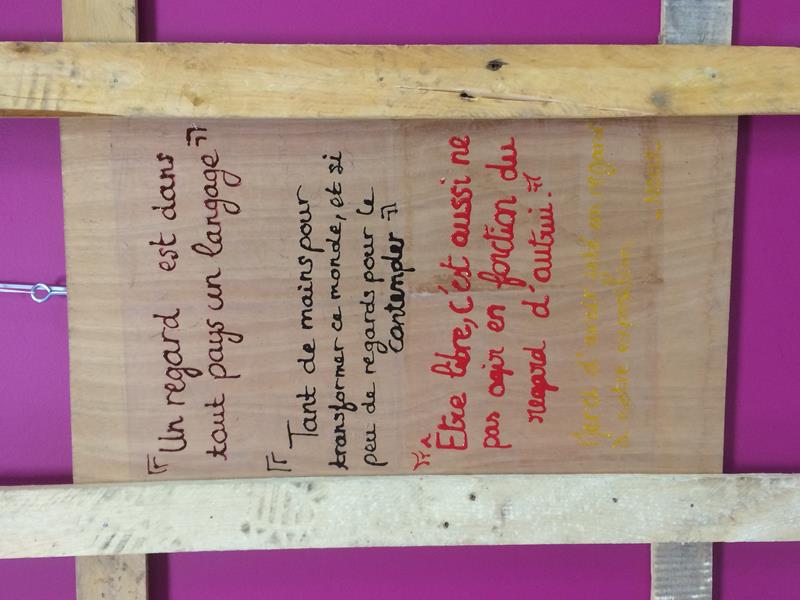 « Un regard est dans
tout pays un langage »
« Tant de mains pour
transformer ce monde, et si
peu de regards pour le
contempler »
« Être libre, c'est aussi ne
pas agir en fonction du
regard d'autrui. »
Merci d'avoir jeté un regard
à notre exposition